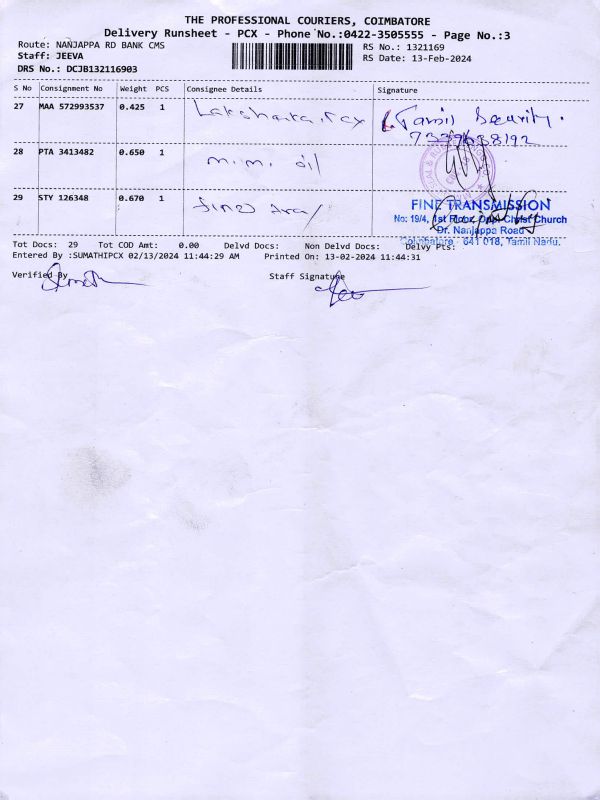 THE PROFESSIONAL COURIERS, COIMBATORE
Delivery Runsheet - PCX - Phone No.:0422-3505555 - Page No.:3
Route: NANJAPPA RD BANK CMS
RS No.: 1321169
Staff: JEEVA
RS Date: 13-Feb-2024
DRS No.: DCJB132116903
S No Consignment No Weight PCS Consignee Details Signature
27 MAA 572993537 0.425 1
Tamil Security.
28 PTA 3413482 0.650 1 m.m. oil
29 STY 126348 0.670 1
FINE TRANSMISSION
No: 19/4, 1st Floor, Opp. Christ Church
Dr. Nanjappa Road
Coimbatore - 641 018, Tamil Nadu.
Tot Docs: 29 Tot COD Amt: 0.00 Delvd Docs: Non Delvd Docs: Delvy Pts:
Entered By :SUMATHIPCX 02/13/2024 11:44:29 AM Printed On: 13-02-2024 11:44:31
Verified By
Staff Signature